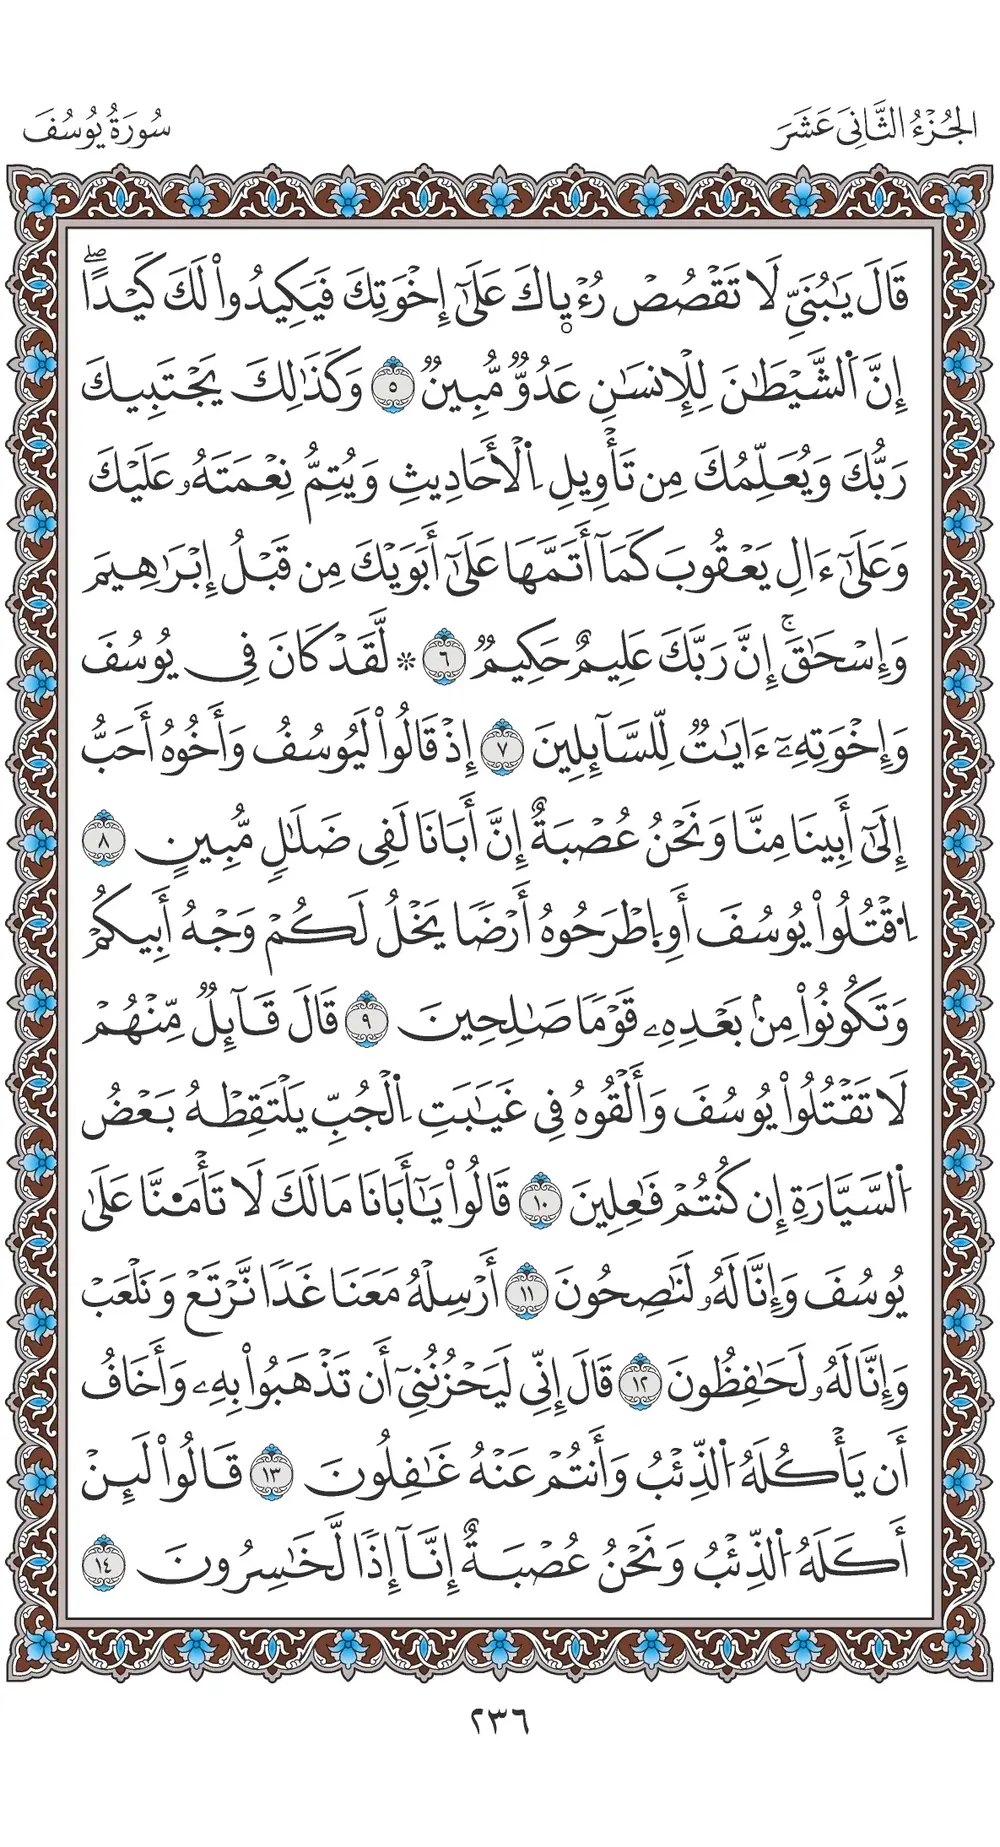 الجُزْءُ الثَّانِيَ عَشَرَ
سُورَةُ يُوسُفَ
قَالَ يَٰبُنَيِّ لَا تَقْصُصْ رُءْيٜاكَ عَلَىٰٓ إِخْوَتِكَ فَيَكِيدُواْ لَكَ كَيْدًاۖ
إِنَّ اَ۬لشَّيْطَٰنَ لِلْإِنسَٰنِ عَدُوّٞ مُّبِينٞ ٥ وَكَذَٰلِكَ يَجْتَبِيكَ
رَبُّكَ وَيُعَلِّمُكَ مِن تَأْوِيلِ اِ۬لْأَحَادِيثِ وَيُتِمُّ نِعْمَتَهُۥ عَلَيْكَ
وَعَلَىٰٓ ءَالِ يَعْقُوبَ كَمَآ أَتَمَّهَا عَلَىٰٓ أَبَوَيْكَ مِن قَبْلُ إِبْرَٰهِيمَ
وَإِسْحَٰقَۚ إِنَّ رَبَّكَ عَلِيمٌ حَكِيمٞ ٦ ۞ لَّقَدْ كَانَ فِي يُوسُفَ
وَإِخْوَتِهِۦٓ ءَايَٰتٞ لِّلسَّآئِلِينَ ٧ إِذْ قَالُواْ لَيُوسُفُ وَأَخُوهُ أَحَبُّ
إِلَىٰٓ أَبِينَا مِنَّا وَنَحْنُ عُصْبَةٌ إِنَّ أَبَانَا لَفِي ضَلَٰلٖ مُّبِينٍ ٨
اِ۟قْتُلُواْ يُوسُفَ أَوِ اِ۪طْرَحُوهُ أَرْضٗا يَخْلُ لَكُمْ وَجْهُ أَبِيكُمْ
وَتَكُونُواْ مِنۢ بَعْدِهِۦ قَوْمٗا صَٰلِحِينَ ٩ قَالَ قَآئِلٞ مِّنْهُمْ
لَا تَقْتُلُواْ يُوسُفَ وَأَلْقُوهُ فِي غَيَٰبَتِ اِ۬لْجُبِّ يَلْتَقِطْهُ بَعْضُ
اُ۬لسَّيَّارَةِ إِن كُنتُمْ فَٰعِلِينَ ١٠ قَالُواْ يَٰٓأَبَانَا مَا لَكَ لَا تَأْمَ۬نَّا عَلَىٰ
يُوسُفَ وَإِنَّا لَهُۥ لَنَٰصِحُونَ ١١ أَرْسِلْهُ مَعَنَا غَدٗا نَّرْتَعْ وَنَلْعَبْ
وَإِنَّا لَهُۥ لَحَٰفِظُونَ ١٢ قَالَ إِنِّي لَيَحْزُنُنِيٓ أَن تَذْهَبُواْ بِهِۦ وَأَخَافُ
أَن يَأْكُلَهُ اُ۬لذِّئْبُ وَأَنتُمْ عَنْهُ غَٰفِلُونَ ١٣ قَالُواْ لَئِنْ
أَكَلَهُ اُ۬لذِّئْبُ وَنَحْنُ عُصْبَةٌ إِنَّآ إِذٗا لَّخَٰسِرُونَ ١٤
٢٣٦